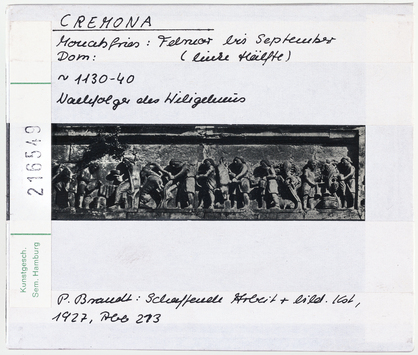 CREMONA
Monatsfries: Februar bis September
Dom: (linke Hälfte)
~ 1130-40
Nachfolger des Wiligelmus
216549
Kunstgesch.
Sem. Hamburg
P. Brandt: Schaffende Arbeit + bild. Kst,
1927, Abb 213